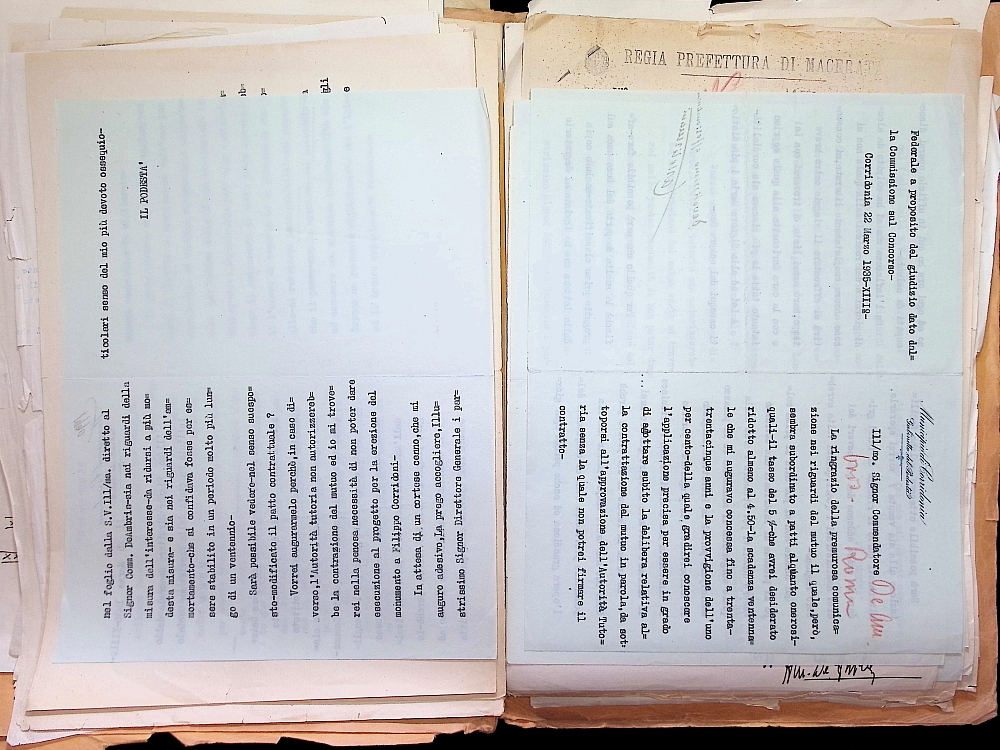 REGIA PREFETTURA DI MACERAT
Federale a proposito del giudizio dato dal=
la Commissione sul Concorso-
Corridonia 22 Marzo 1935-XIIIº-
Municipio di Corridonia
Gabinetto del Podestà
Ill/mo. Signor Commendatore
Roma
La ringrazio della premurosa comunica=
zione nei riguardi del mutuo il quale,però,
sembra subordinato a patti alquanto onerosi-
quali-il tasso del 5 %-che avrei desiderato
ridotto almeno al 4.50-la scadenza ventenna=
le che mi auguravo concessa fino a trenta-
trentacinque anni e la provvigione dell'uno
per cento-della quale gradirei conoscere
l'applicazione precisa per essere in grado
di adottare subito la delibera relativa al=
la contrattazione del mutuo in parola,da sot=
toporsi all'approvazione dell'Autorità Tuto=
ria senza la quale non potrei firmare il
contratto-
nel foglio della S.V.Ill/ma. diretto al
Signor Comm. Deambris-sia nei riguardi della
misura dell'interesse-da ridursi a più mo=
desta misura- e sia nei riguardi dell'am=
mortamento-che si confidava fosse per es=
sere stabilito in un periodo molto più lun=
go di un ventennio-
Sarà possibile vedere-nel senso suespo=
sto-modificato il patto contrattuale ?
Vorrei augurarmelo perchè,in caso di=
verso,l'Autorità tutoria non autorizzereb=
be la contrazione del mutuo ed io mi trove=
rei nella penosa necessità di non poter dare
esecuzione al progetto per la erezione del
monumento a Filippo Corridoni-
In attesa di un cortese cenno,che mi
auguro adesivo,La prego accogliere,Illu=
strissimo Signor Direttore Generale i par=
ticolari senso del mio più devoto ossequio-
IL PODESTA'